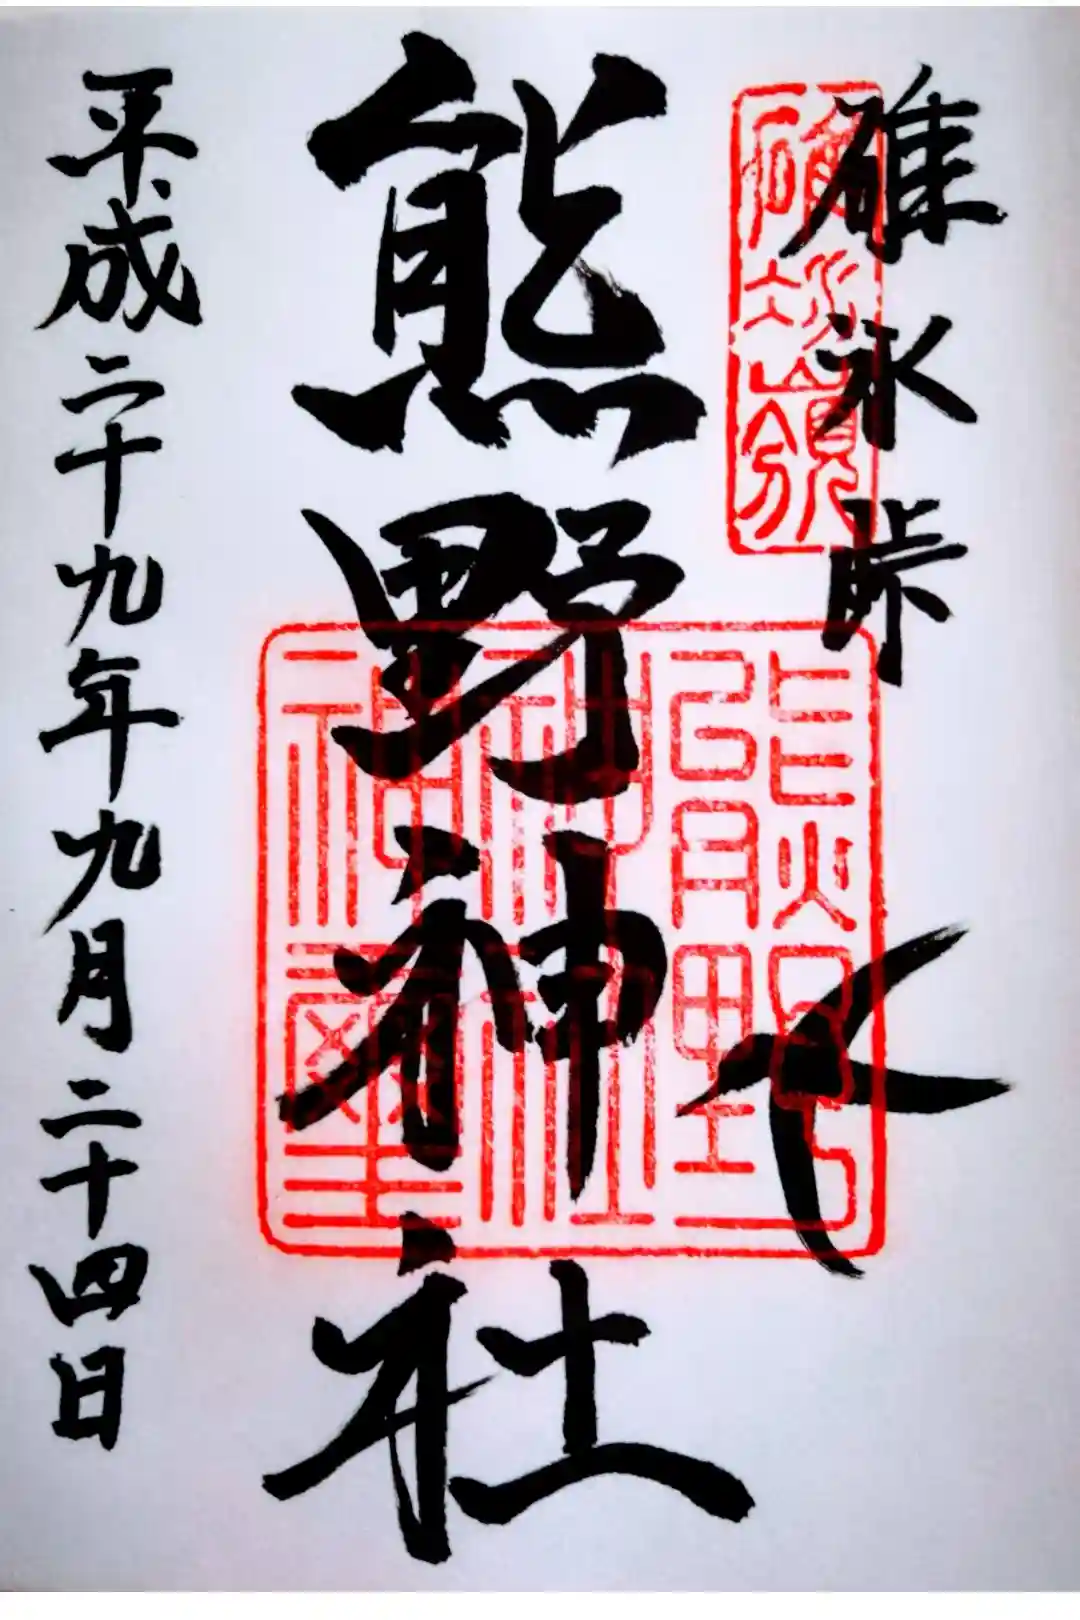 碓氷峠
熊野神社
熊野神社神璽
平成二十九年九月二十四日